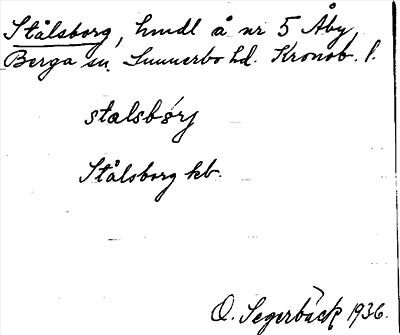 Stålsborg, hmdl å nr 5 Åby,
Berga sn. Sunnerbo hd. Kronob. l.
stalsbɷrj
Stålsborg kb.
O. Segerbäck 1936.